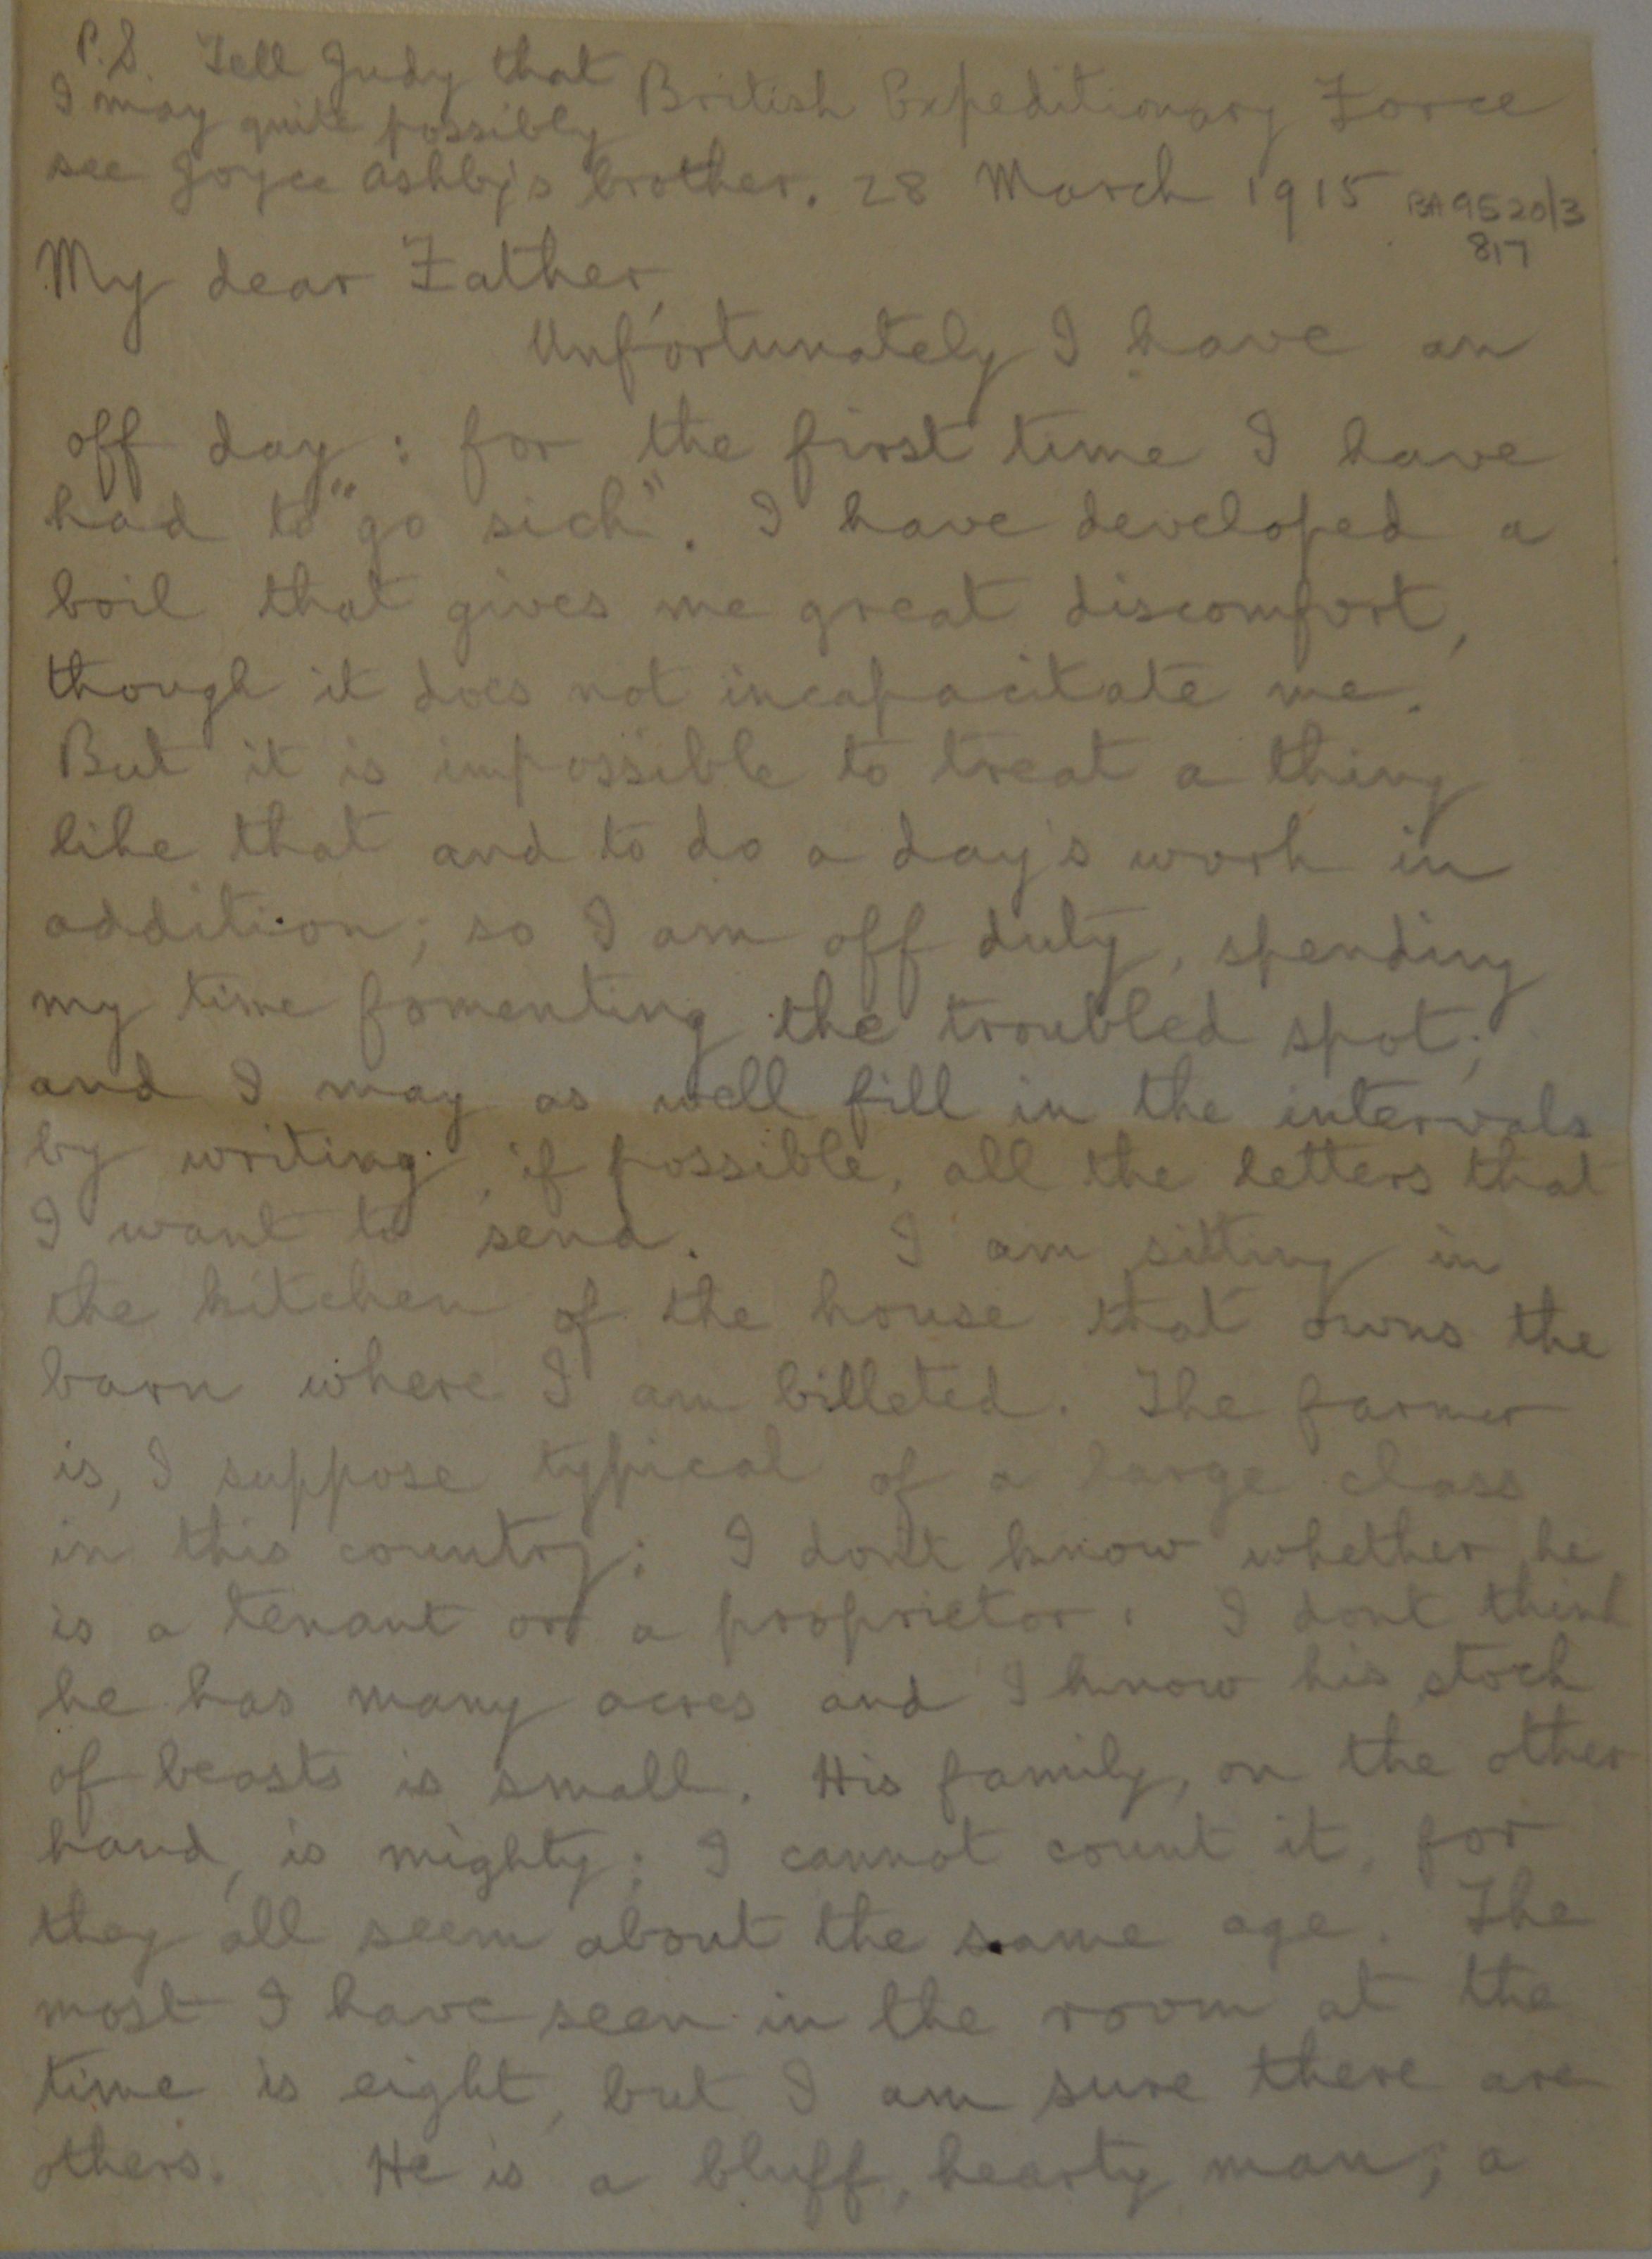 P.S. Tell Judy that
I may quite possibly
see Joyce Ashby's brother.
British Expeditionary Force
28 March 1915
BA9520/3
817
My dear Father,
Unfortunately I have an
off day: for the first time I have
had to "go sick". I have developed a
boil that gives me great discomfort,
though it does not incapacitate me.
But it is impossible to treat a thing
like that and to do a day's work in
addition; so I am off duty, spending
my time fomenting the troubled spot;
and I may as well fill in the intervals
by writing, if possible, all the letters that
I want to send. I am sitting in
the kitchen of the house that owns the
barn where I am billeted. The farmer
is, I suppose typical of a large class
in this country: I don't know whether he
is a tenant or a proprietor. I dont think
he has many acres and I know his stock
of beasts is small. His family, on the other
hand, is mighty; I cannot count it, for
they all seem about the same age. The
most I have seen in the room at the
time is eight, but I am sure there are
others. He is a bluff, hearty man; a